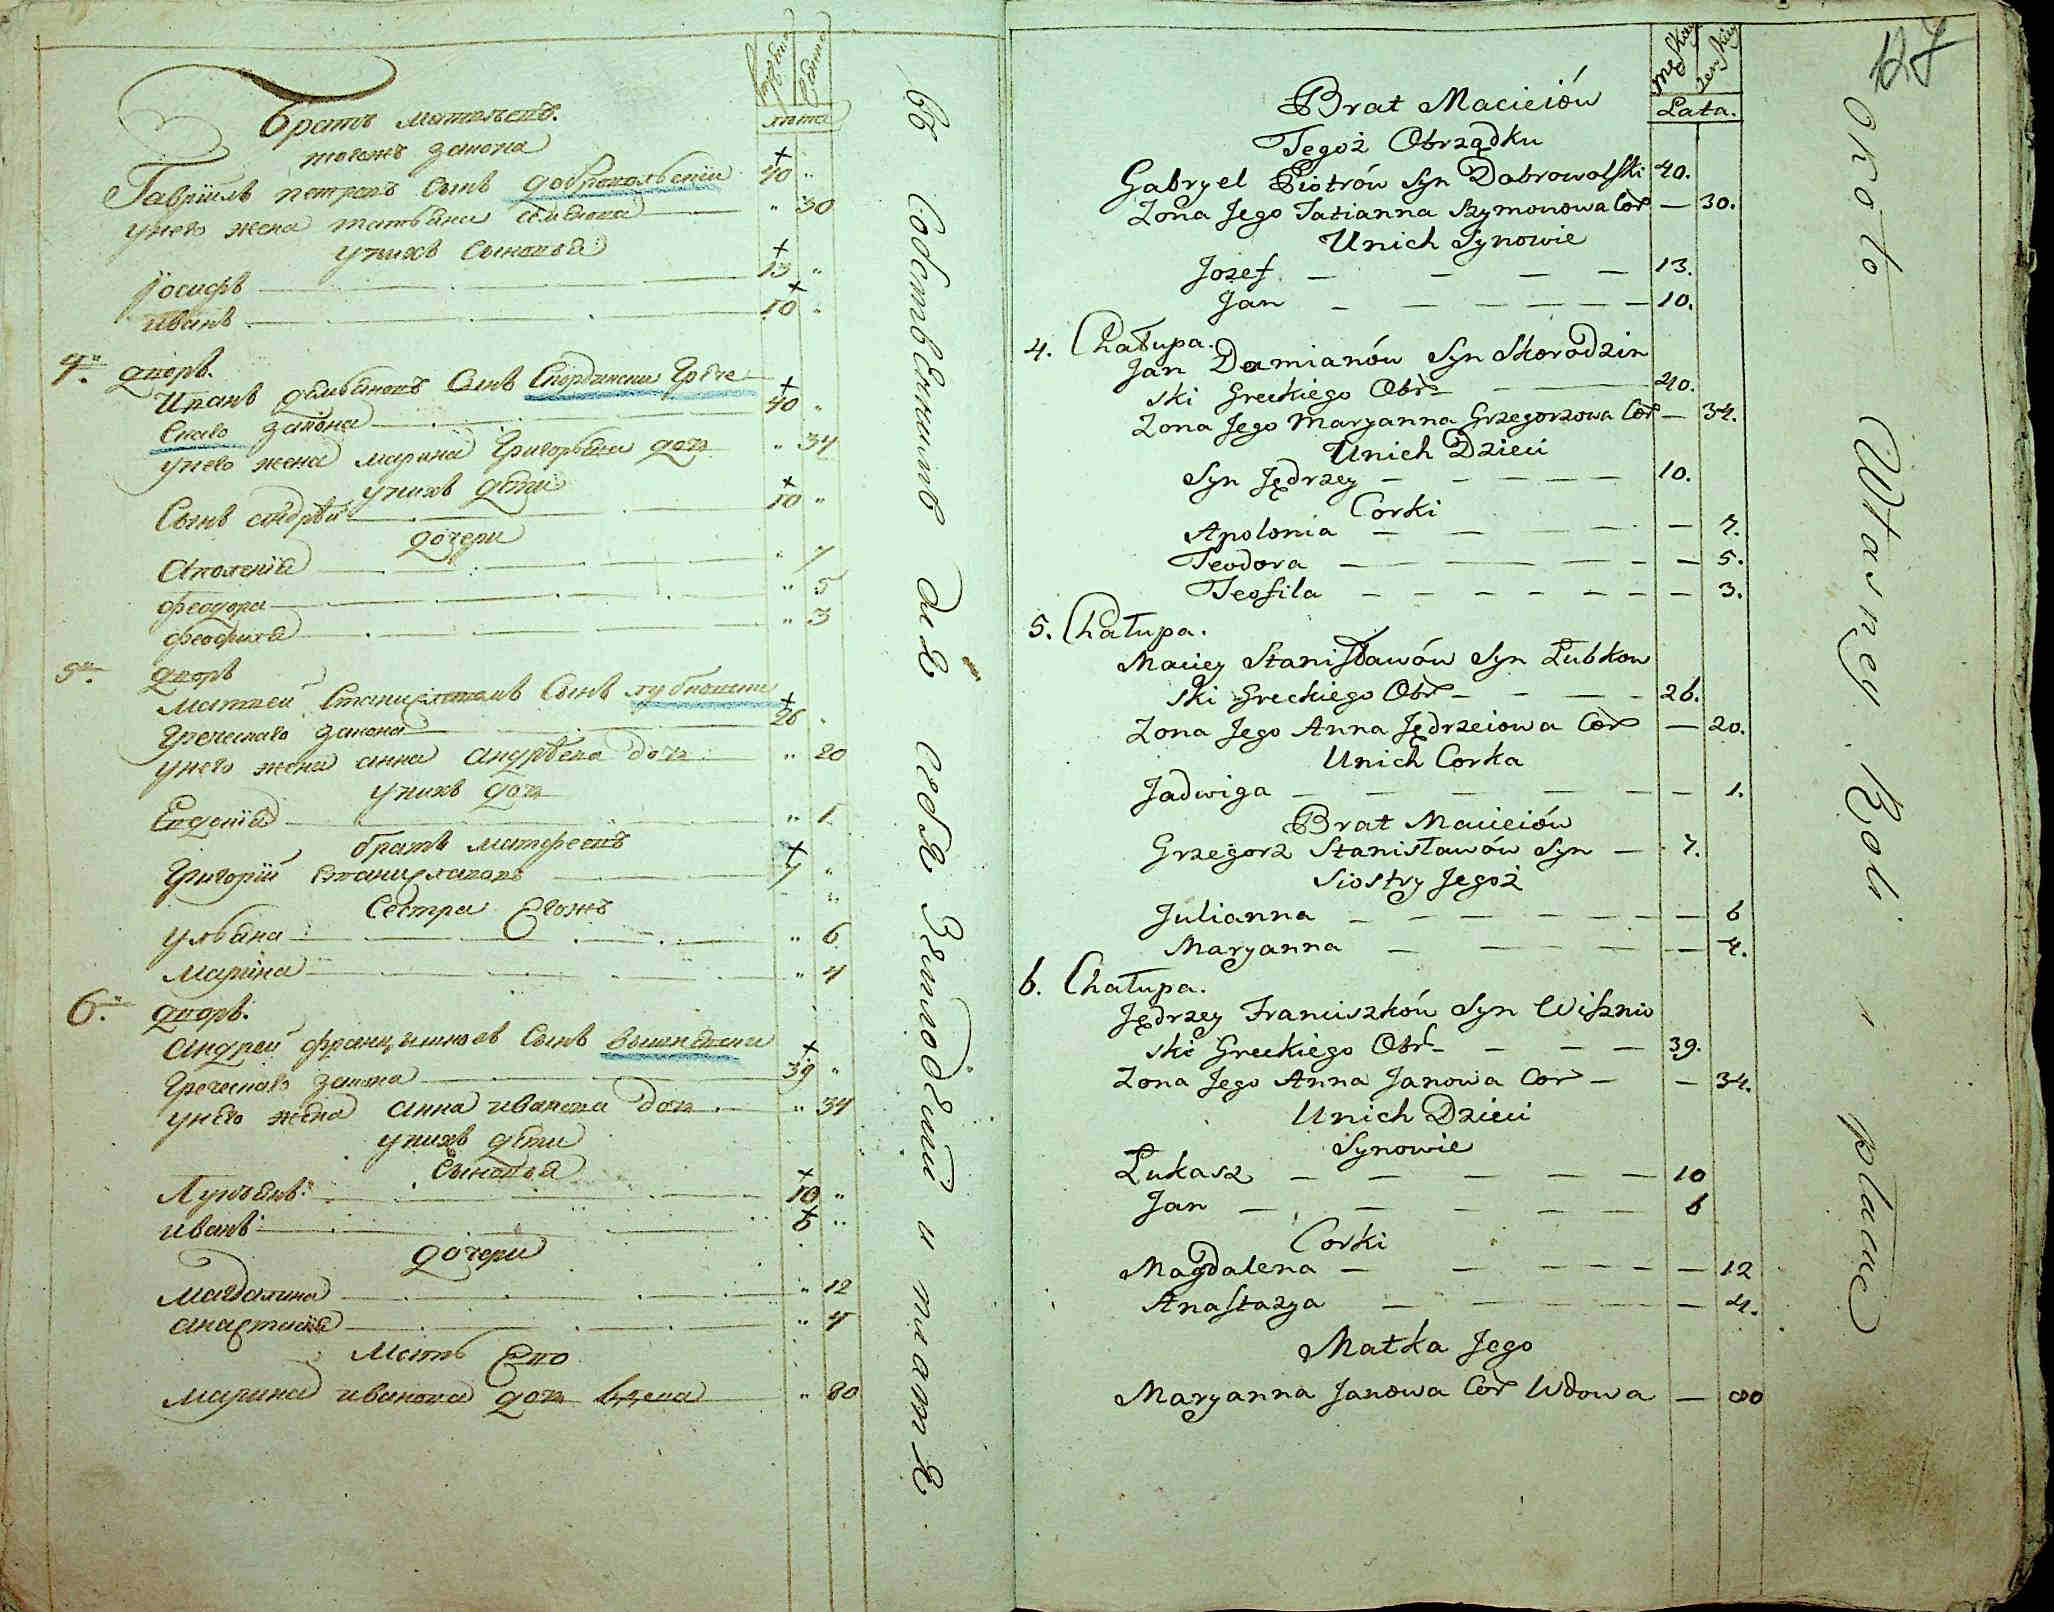 братъ матвеевъ.
тогожъ закона
Гавріилъ петровъ сынъ добровольскіи 40 „
у него жена татьяна семенова „ 30
у нихъ сыновья
Іосифъ 13 „
иванъ 10 „
4. дворъ.
Иванъ демьяновъ сынъ скородински грече
скаго закона 40 „
у него жена марина григорьева дочь „ 34
у нихъ дѣти
сынъ андрѣй 10 „
дочери
аполенія „ 7
феодора „ 5
феофила „ 3
5. дворъ
матвей станиславовъ сынъ лубковски
греческаго закона 26
у него жена анна андрѣева дочь „ 20
у нихъ дочь
Евдокия „ 1
братъ матфеевъ
григорій станиславовъ 7 „
сестра Егожъ „
ульяна „ 6
марина „ 4
6. дворъ.
андрей францышковъ сынъ вишневски
греческаго закона 39 „
у него жена анна иванова дочь „ 34
у нихъ дѣти
сыновья
Лукьянъ 10 „
иванъ 6 „
дочери
магдалина „ 12
анастасія „ 4
мать Его
марина иванова дочь вдова „ 80
лѣта
Въ собственнымъ для себя Земледеліи и платя
127
męskiey żenskiey
Lata.
Brat Macieiów
Tegoż Obrządku
Gabryel Piotrów Syn Dobrowolski 40.
Zona Jego Tatianna Szymonowa Cór — 30.
Unich Synowie
Jozef — — — — 13.
Jan — — — — — — 10.
4. Chałupa.
Jan Damianów Syn Skorodzin
ski Greckiego Obr — 40.
Zona Jego Maryanna Grzegorzowa Cór — 34.
Unich Dzieci
Syn Jędrzey — — — — — 10.
Corki
Apolonia — — — — — 7.
Teodora — — — — — — — 5.
Teofila — — — — — — — — 3.
5. Chałupa.
Maciey Stanisławów Syn Łubkow
ski Greckiego Obr — — — — 26.
Zona Jego Anna Jędrzeiowa Cór — 20.
Unich Corka
Jadwiga — — — — — — — 1.
Brat Macieiów
Grzegorz Stanisławów Syn — 7.
Siostry Jegoż
Julianna — — — — — — — — 6
Maryanna — — — — — — 4.
6. Chałupa.
Jędrzey Franciszków Syn Wiszniw
ski Greckiego Obr — — — — 39.
Zona Jego Anna Janowa Cor — — 34.
Unich Dzieci
Synowie
Łukasz — — — — — 10
Jan — — — — — — 6
Corki
Magdalena — — — — — — — 12
Anastazya — — — — — — 4.
Matka Jego
Maryanna Janowa Cór Wdowa — 80
Około Własney Roli i płacne